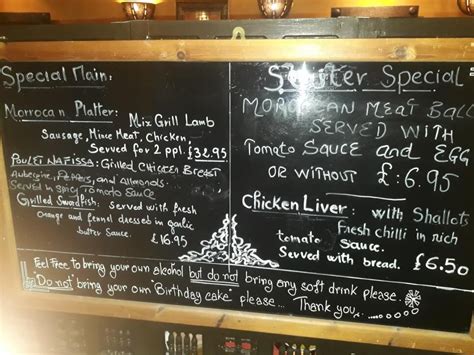 Special Main:
Morrocan Platter:
Mix Grill Lamb
Sausage, Mince Meat, Chicken.
Served for 2 ppl. £32.95
Poulet Nafissa: Grilled Chicken Breast
Aubergine, Peppers, and Almonds.
Served in spicy Tomato Sauce
Grilled Swordfish: Served with fresh
orange and fennel dressed in garlic
butter sauce. £16.95
Special:
Moroccan Meat Ball
Served with
Tomato Sauce and Egg
or without £:6.95
Chicken Liver: with Shallots
Fresh chilli in rich
tomato Sauce.
Served with bread. £6.50
Feel Free to bring your own alcohol but do not bring any soft drink please.
Do not bring your own "Birthday cake" please... Thank you.